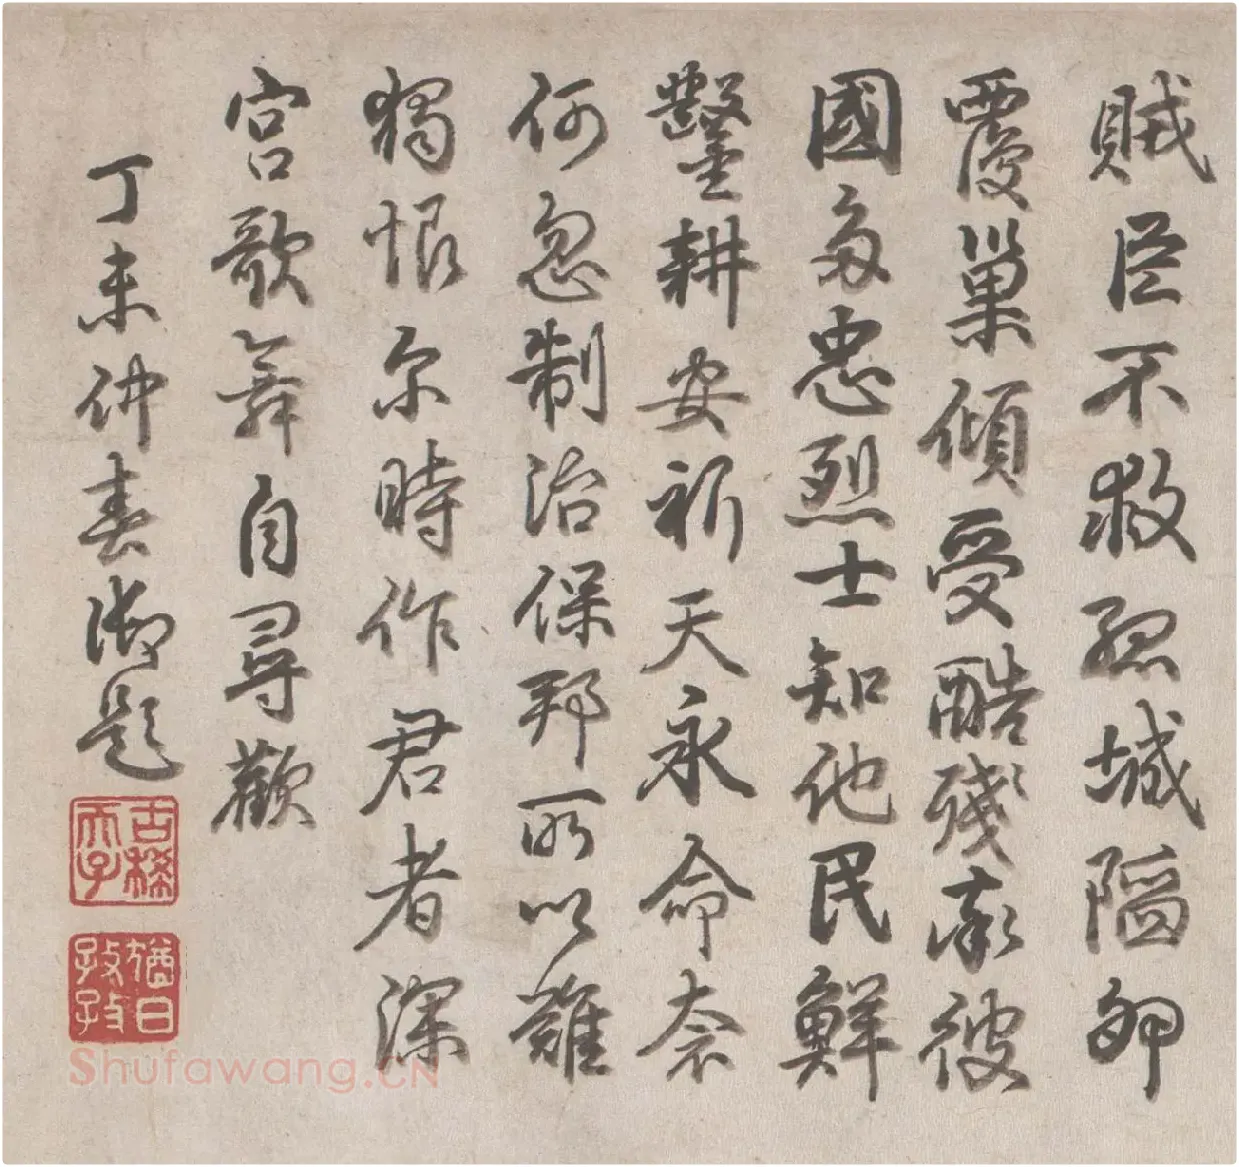 賊臣不救孤城陷卵
覆巢傾受酷殘彼
國多忠烈士知他民鮮
鑿耕安祈天永命奈
何忽制治保邦所以難
獨恨尔時作君者深
宮歌舞自尋歡
丁未仲春御題
古稀天子
猶日孜孜
Shufawang.CN